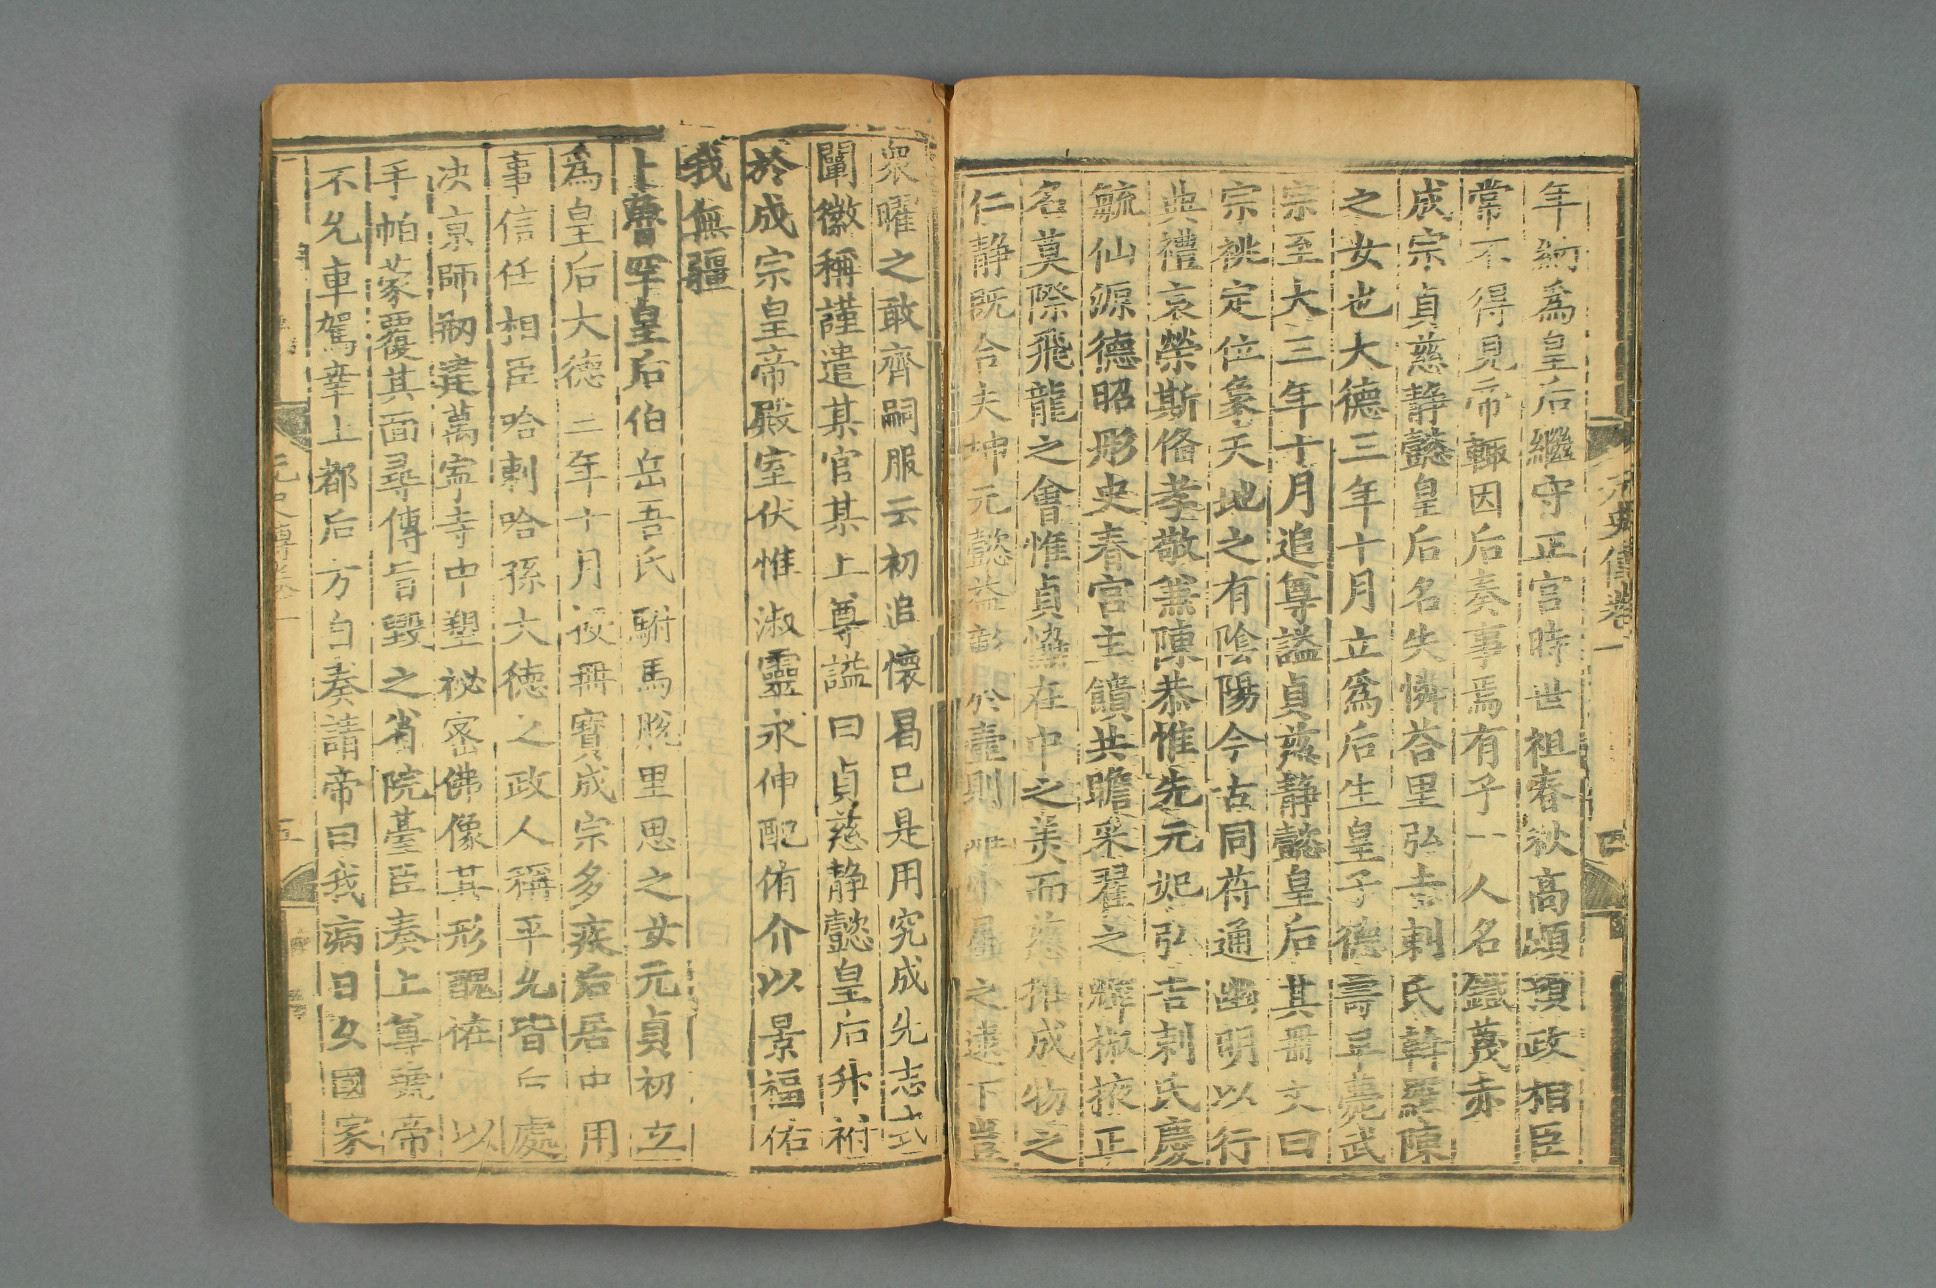 元史傳卷一
四
年納為皇后繼守正宮時世祖春秋高頗預政相臣
常不得見帝輒因后奏事焉有子一人名鐵蔑赤
成宗貞慈静懿皇后名失憐荅里弘吉剌氏斡羅陳
之女也大德三年十月立為后生皇子德壽早薨武
宗至大三年十月追尊謚貞慈静懿皇后其冊文曰
宗祧定位象天地之有陰陽今古同符通幽明以行
典禮哀榮斯俻孝敬兼陳恭惟先元妃弘吉剌氏慶
毓仙源德昭彤史春宮主饋共瞻采翟之輝椒掖正
名莫際飛龍之會惟貞懿在中之美而慈推成物之
仁静既合夫坤元懿益彰於壼則 之遠下豈
衆曜之敢齊嗣服云初追懷曷已是用究成先志式
闡徽稱謹遣某官某上尊謚曰貞慈静懿皇后升祔
於成宗皇帝殿室伏惟淑靈永伸配侑介以景福佑
我無疆
卜魯罕皇后伯岳吾氏駙馬脱里思之女元貞初立
為皇后大德三年十月授冊寳成宗多疾后居中用
事信任相臣哈剌哈孫大德之政人稱平允皆后處
决京師剏建萬寧寺中塑祕宻佛像其形醜 以
手帕蒙覆其面尋傳旨毁之省院臺臣奏上尊號帝
不允車駕幸上都后方自奏請帝曰我病日久國家
元史傳卷一
五